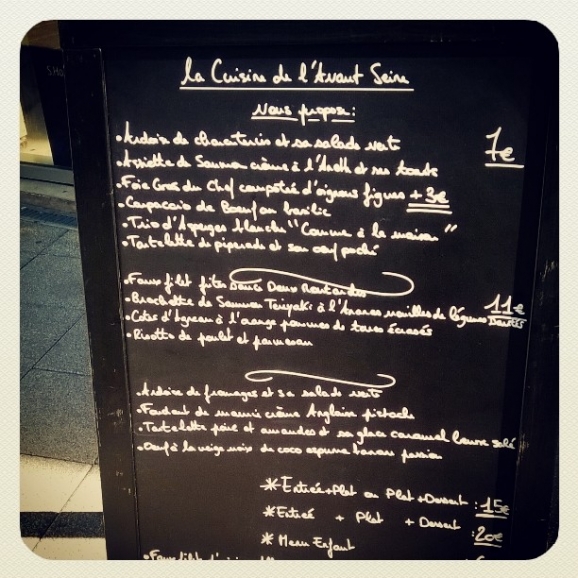 La Cuisine de l'Avant Seine
Nous propose:
•Ardoise de charcuteries et sa salade verte
7€
•Assiette de Saumon crème à l'Aneth et ses toasts
•Foie Gras du Chef compotée d'oignons figues +3€
•Carpaccio de Boeuf au basilic
•Trio d'Asperges blanche "Comme à la maison"
•Tartelette de piperade et son oeuf poché
•Faux filet frites sauce Deux Moutardes
•Brochette de Saumon Teriyaki à l'Ananas nouilles de légumes sautés
11€
•Cotes d'agneau à l'orange pommes de terres écrasées
•Risotto de poulet et parmesan
•Ardoise de fromages et sa salade verte
•Fondant de marrons crème Anglaise pistache
•Tartelette poire et amandes et sa glace caramel beurre salé
•Oeuf à la neige noix de coco espuma banane passion
*Entrée+Plat ou Plat+Dessert : 15€
*Entrée + Plat + Dessert : 20€
*Menu Enfant